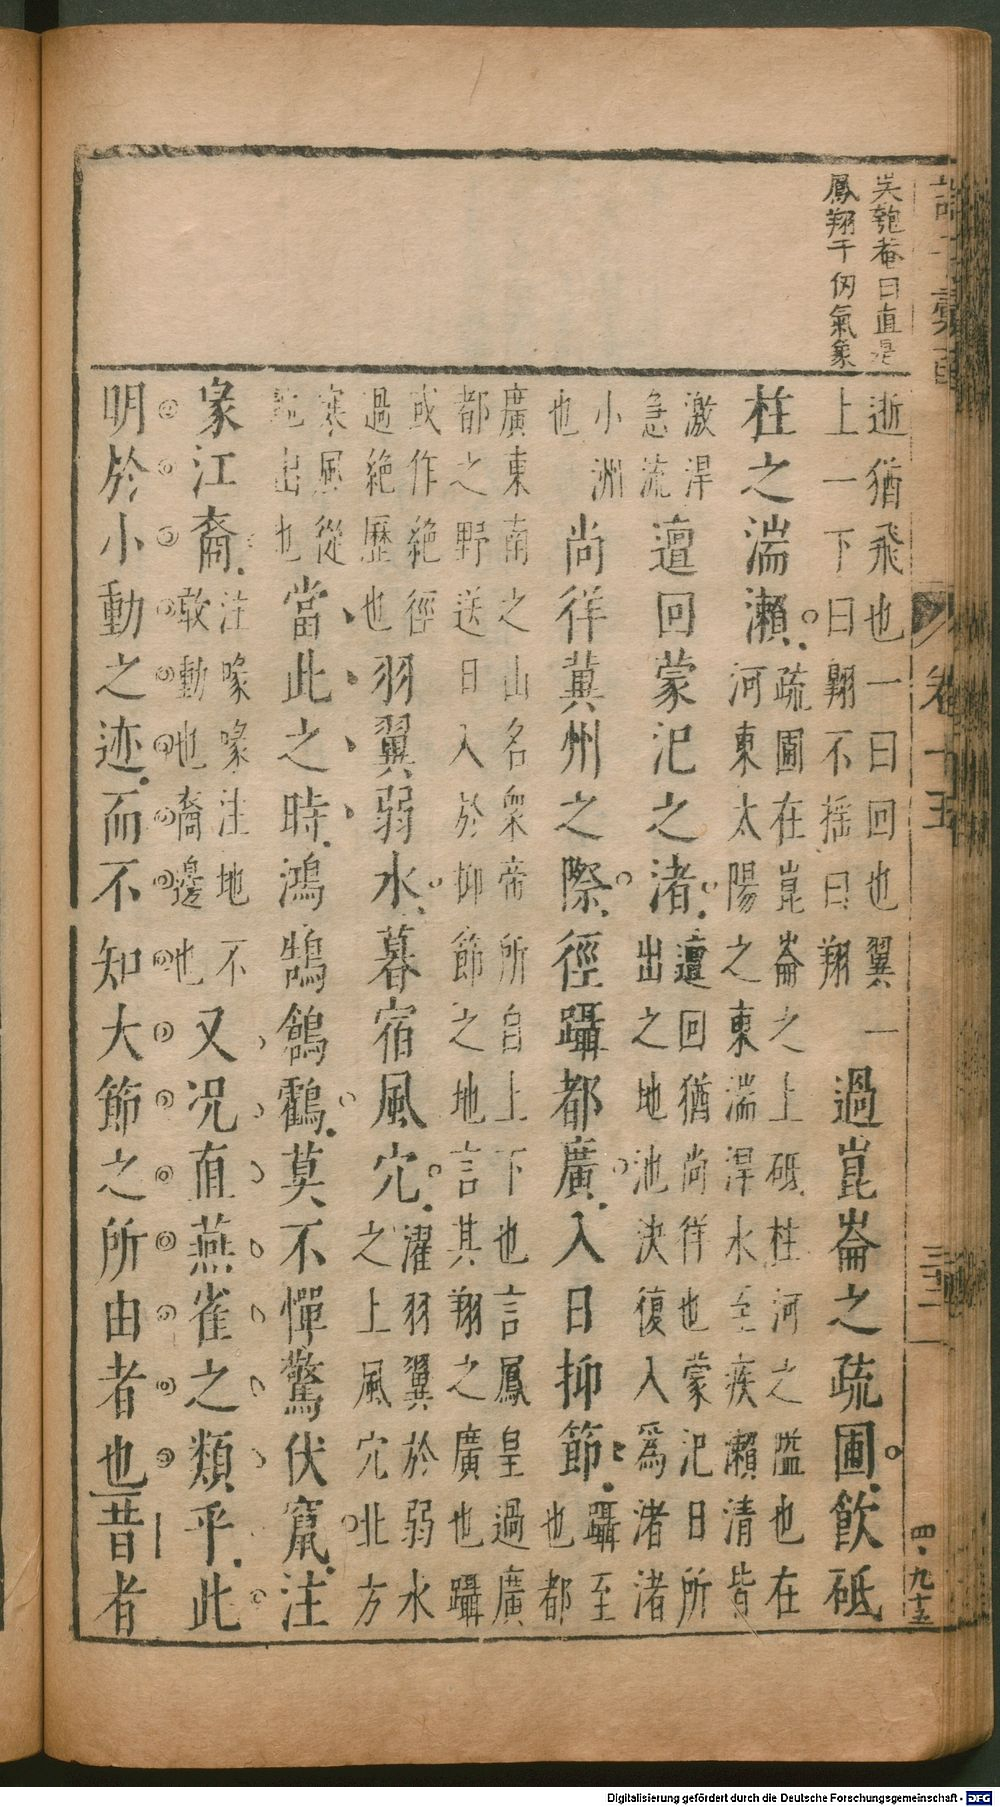 吳匏菴曰直是
鳳翔千仞氣象
卷十五
四九十五
逝猶飛也一曰回也翼一
上一下曰翺不搖曰翔
過崑崙之疏圃飲砥
柱之湍瀨
疏圃在崑崙之上砥柱河之隘也在
河東太陽之東湍涆水至疾瀨清皆
激涆
急流
邅回蒙汜之渚
邅回猶尚徉也蒙汜日所
出之地池決復入爲渚渚
小洲
也
尚徉冀州之際徑躡都廣入日抑節
躡至
也都
廣東南之山名衆帝所自上下也言鳳皇過廣
都之野送日入於抑節之地言其翔之廣也躡
或作絶徑
過絶歷也
羽翼弱水暮宿風穴
濯羽翼於弱水
之上風穴北方
寒風從
地出也
當此之時鴻鵠鶬鸖莫不憚驚伏竄注
喙江裔
注喙喙注地不
敢動也裔邊也
又况直燕雀之類乎此
明於小動之迹而不知大節之所由者也昔者
Digitalisierung gefördert durch die Deutsche Forschungsgemeinschaft - DFG